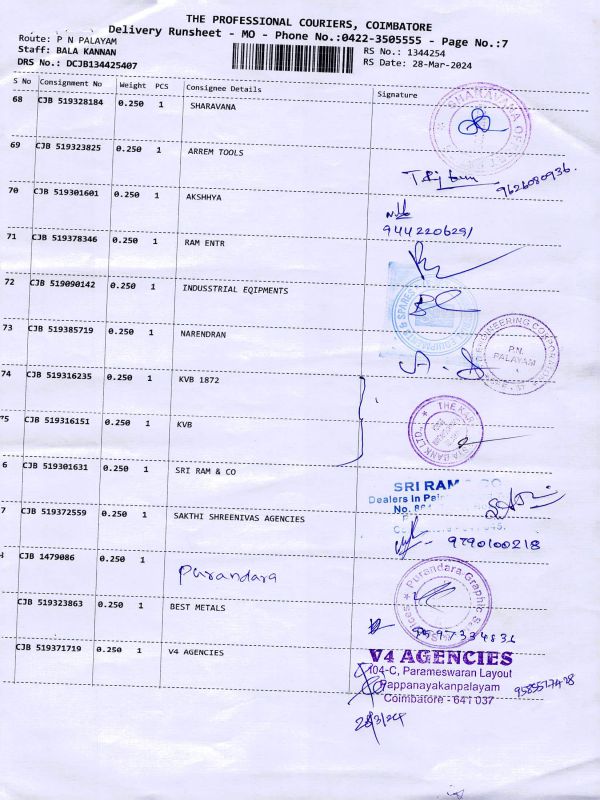 THE PROFESSIONAL COURIERS, COIMBATORE
Delivery Runsheet - MO - Phone No.:0422-3505555 - Page No.:7
Route: P N PALAYAM
Staff: BALA KANNAN RS No.: 1344254
DRS No.: DCJB134425407 RS Date: 28-Mar-2024
S No Consignment No Weight PCS Consignee Details Signature
68 CJB 519328184 0.250 1 SHARAVANA
69 CJB 519323825 0.250 1 ARREM TOOLS
9626080936.
70 CJB 519301601 0.250 1 AKSHHYA
9442206291
71 CJB 519378346 0.250 1 RAM ENTR
72 CJB 519090142 0.250 1 INDUSSTRIAL EQIPMENTS
EQUIPMENT & SPARES
73 CJB 519385719 0.250 1 NARENDRAN
ENGINEERING
P.N.
PALAYAM
74 CJB 519316235 0.250 1 KVB 1872
75 CJB 519316151 0.250 1 KVB
THE BANK LTD.
6 CJB 519301631 0.250 1 SRI RAM & CO
SRI RAM CO
Dealers in
No.
7 CJB 519372559 0.250 1 SAKTHI SHREENIVAS AGENCIES
9790100218
CJB 1479086 0.250 1 Purandara
Purandara Graphic
CJB 519323863 0.250 1 BEST METALS
CJB 519371719 0.250 1 V4 AGENCIES
V4 AGENCIES
104-C, Parameswaran Layout
Pappanayakanpalayam
Coimbatore - 641 037
28/3/24